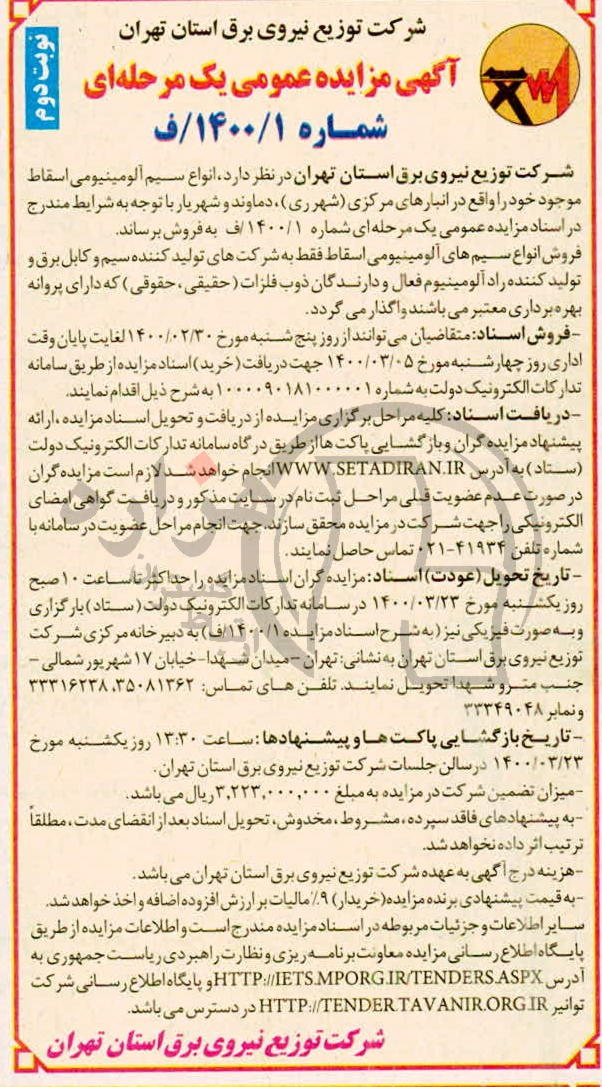 شرکت توزیع نیروی برق استان تهران
نوبت دوم
آگهی مزایده عمومی یک مرحله‌ای
شماره ۱۴۰۰/۱/ف
شرکت توزیع نیروی برق استان تهران در نظر دارد، انواع سیم آلومینیومی اسقاط
موجود خود را واقع در انبارهای مرکزی (شهر ری)، دماوند و شهریار با توجه به شرایط مندرج
در اسناد مزایده عمومی یک مرحله‌ای شماره ۱۴۰۰/۱/ف به فروش برساند.
فروش انواع سیم‌های آلومینیومی اسقاط فقط به شرکت‌های تولید کننده سیم و کابل برق و
تولید کننده راد آلومینیوم فعال و دارندگان ذوب فلزات (حقیقی، حقوقی) که دارای پروانه
بهره‌برداری معتبر می‌باشند واگذار می گردد.
-فروش اسناد: متقاضیان می‌توانند از روز پنج شنبه مورخ ۱۴۰۰/۰۲/۳۰ لغایت پایان وقت
اداری روز چهارشنبه مورخ ۱۴۰۰/۰۳/۰۵ جهت دریافت (خرید) اسناد مزایده از طریق سامانه
تدارکات الکترونیک دولت به شماره ۱۰۰۰۰۹۰۱۸۱۰۰۰۰۰۱ به شرح ذیل اقدام نمایند.
-دریافت اسناد: کلیه مراحل برگزاری مزایده از دریافت و تحویل اسناد مزایده، ارائه
پیشنهاد مزایده گران و بازگشایی پاکت ها از طریق درگاه سامانه تدارکات الکترونیک دولت
(ستاد) به آدرس WWW.SETADIRAN.IR انجام خواهد شد لازم است مزایده گران
در صورت عدم عضویت قبلی مراحل ثبت نام در سایت مذکور و دریافت گواهی امضای
الکترونیکی را جهت شرکت در مزایده محقق سازند. جهت انجام مراحل عضویت در سامانه با
شماره تلفن ۴۱۹۳۴-۰۲۱ تماس حاصل نمایند.
- تاریخ تحویل (عودت) اسناد: مزایده گران اسناد مزایده را حداکثر تا ساعت ۱۰ صبح
روز یکشنبه مورخ ۱۴۰۰/۰۳/۲۳ در سامانه تدارکات الکترونیک دولت (ستاد) بارگزاری
و به صورت فیزیکی نیز (به شرح اسناد مزایده ۱۴۰۰/۱/ف) به دبیرخانه مرکزی شرکت
توزیع نیروی برق استان تهران به نشانی: تهران -میدان شهدا-خیابان ۱۷ شهریور شمالی -
جنب مترو شهدا تحویل نمایند. تلفن های تماس: ۳۵۰۸۱۳۶۲، ۳۳۳۱۶۲۳۸
و نمابر ۳۳۳۴۹۰۴۸
- تاریخ بازگشایی پاکت ها و پیشنهادها: ساعت ۱۳:۳۰ روز یکشنبه مورخ
۱۴۰۰/۰۳/۲۳ در سالن جلسات شرکت توزیع نیروی برق استان تهران.
-میزان تضمین شرکت در مزایده به مبلغ ۳,۲۲۳,۰۰۰,۰۰۰ ریال می باشد.
-به پیشنهادهای فاقد سپرده، مشروط، مخدوش، تحویل اسناد بعد از انقضای مدت، مطلقاً
ترتیب اثر داده نخواهد شد.
-هزینه درج آگهی به عهده شرکت توزیع نیروی برق استان تهران می باشد.
-به قیمت پیشنهادی برنده مزایده (خریدار) ۹٪ مالیات بر ارزش افزوده اضافه و اخذ خواهد شد.
سایر اطلاعات و جزئیات مربوطه در اسناد مزایده مندرج است و اطلاعات مزایده از طریق
پایگاه اطلاع رسانی مزایده معاونت برنامه ریزی و نظارت راهبردی ریاست جمهوری به
آدرس HTTP://IETS.MPORG.IR/TENDERS.ASPX و پایگاه اطلاع رسانی شرکت
توانیر HTTP://TENDER.TAVANIR.ORG.IR در دسترس می باشد.
شرکت توزیع نیروی برق استان تهران